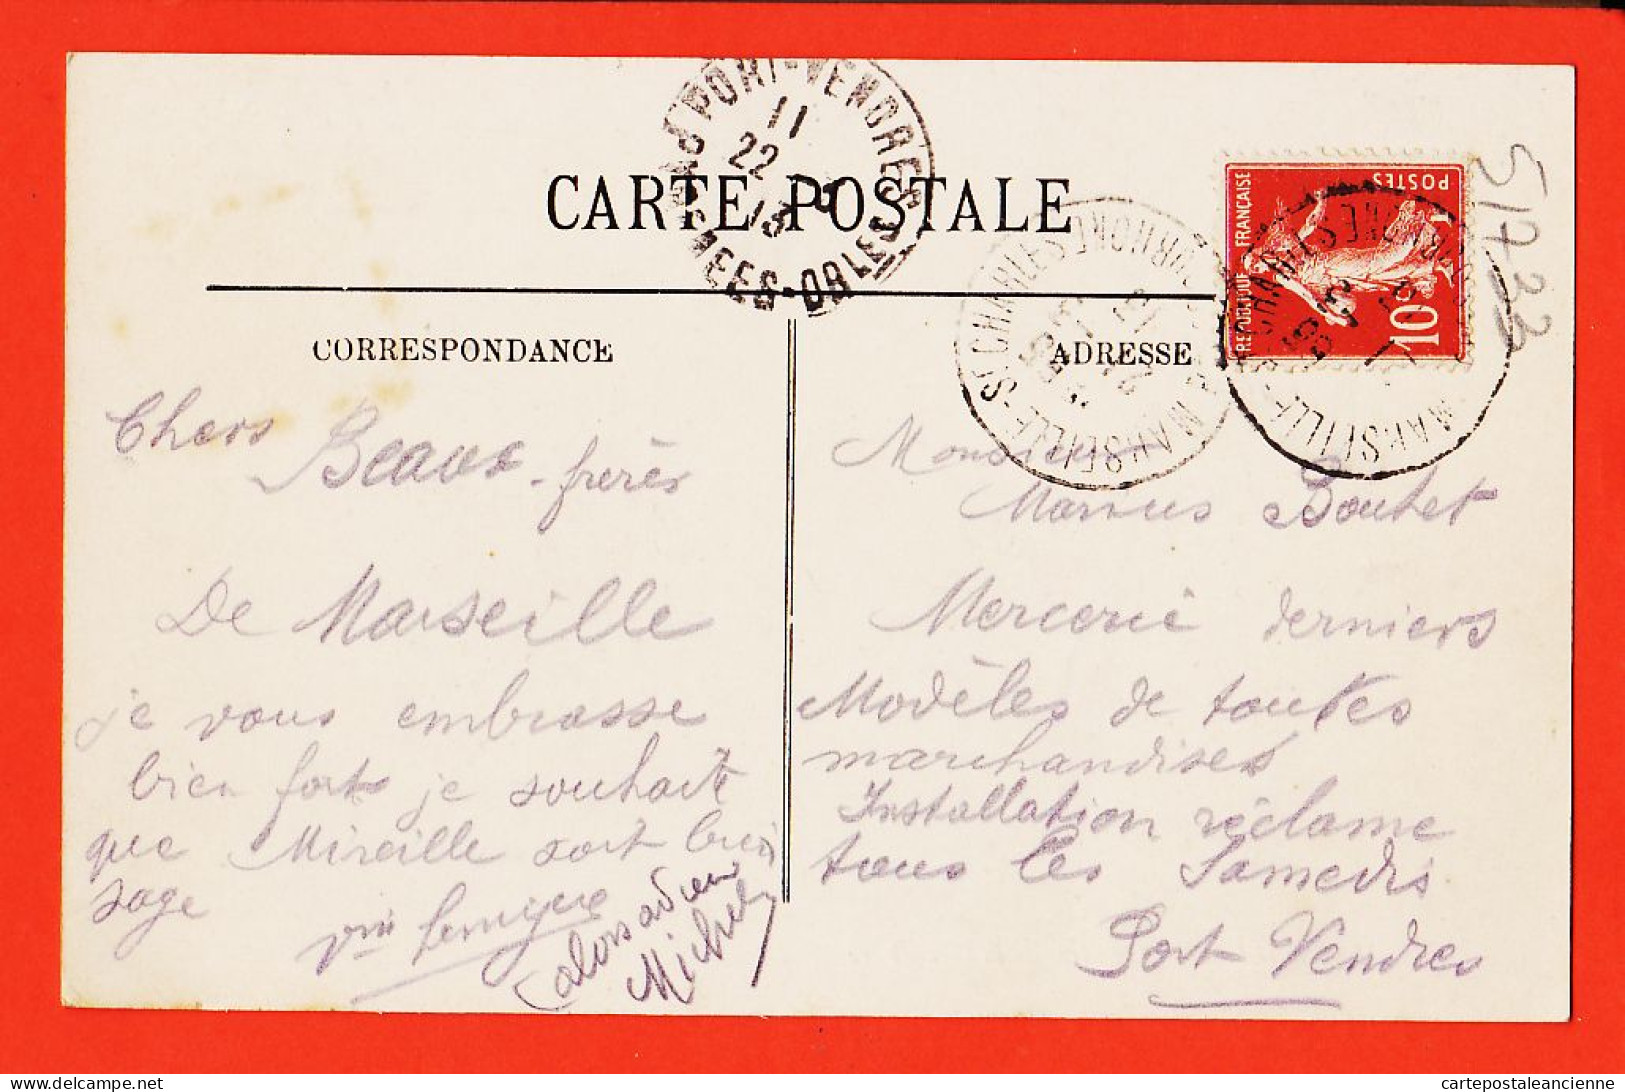 PORT-VENDRES
11
22 - 8
13
PYRÉNÉES-ORLES
CARTE POSTALE
CORRESPONDANCE
ADRESSE
MARSEILLE-ST CHARLES
MARSEILLE-ST CHARLES
REPUBLIQUE FRANÇAISE
POSTES
10
51733
Chers
Beaux-frères
De Marseille
je vous embrasse
bien fort je souhaite
que Mireille soit bien
sage
alors adieu
Michel
Monsieur
Marius Boutet
Mercerie derniers
Modèles de toutes
marchandises
Installation réclame
tous les Samedis
Port Vendres
cartepostaleancienne